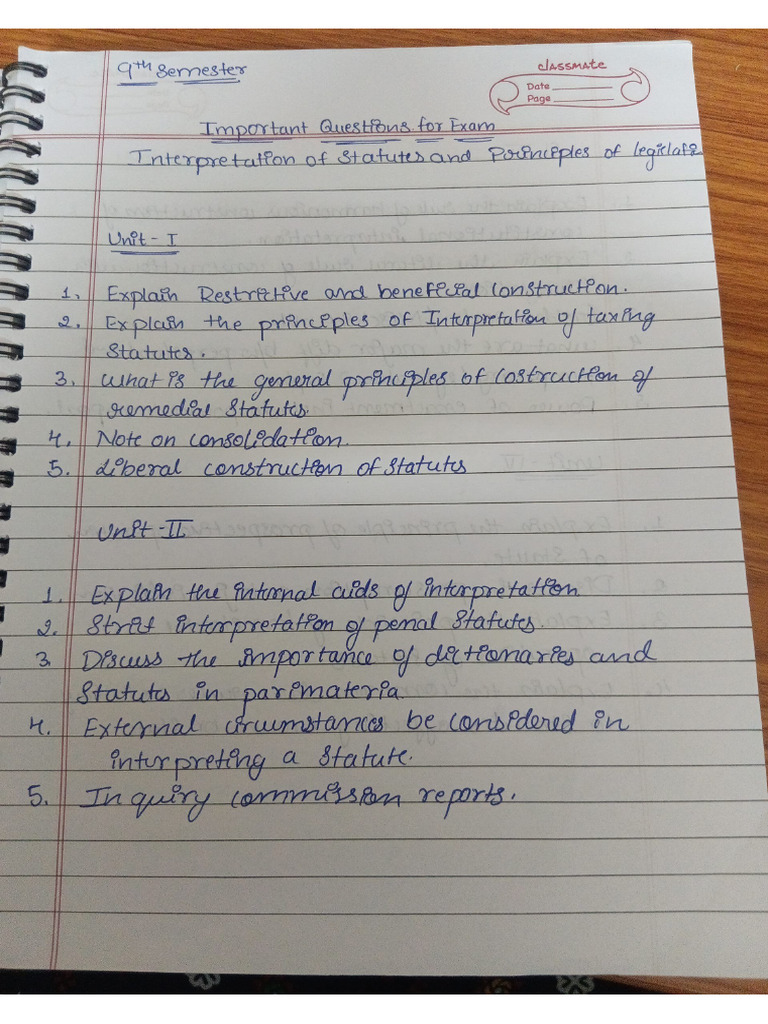 9th Semester
classmate
Date
Page
Important Questions for Exam
Interpretation of Statutes and Principles of legislati
Unit - I
1. Explain Restrictive and beneficial construction.
2. Explain the principles of Interpretation of taxing
Statutes.
3. What is the general principles of Costruction of
remedial Statutes.
4. Note on Consolidation.
5. Liberal construction of Statutes
Unit - II
1. Explain the internal aids of interpretation
2. Strict interpretation of penal Statutes.
3. Discuss the importance of dictionaries and
Statutes in parimateria.
4. External circumstances be considered in
interpreting a Statute.
5. Inquiry commission reports.